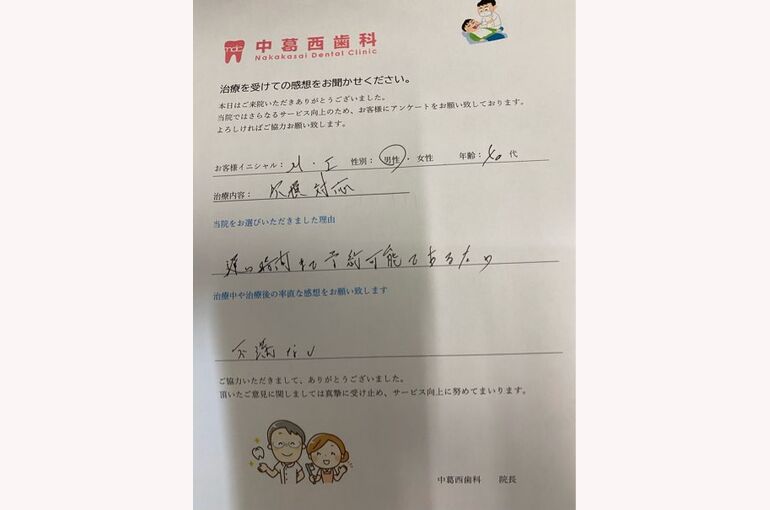 ndc 中葛西歯科
Nakakasai Dental Clinic
治療を受けての感想をお聞かせください。
本日はご来院いただきありがとうございました。
当院ではさらなるサービス向上のため、お客様にアンケートをお願い致しております。
よろしければご協力お願い致します。
お客様イニシャル： M・I 性別： 男性・女性 年齢： 40代
治療内容： 対応
当院をお選びいただきました理由
遅い時間まで予約可能であるため
治療中や治療後の率直な感想をお願い致します
不満なし
ご協力いただきまして、ありがとうございました。
頂いたご意見に関しましては真摯に受け止め、サービス向上に努めてまいります。
中葛西歯科 院長